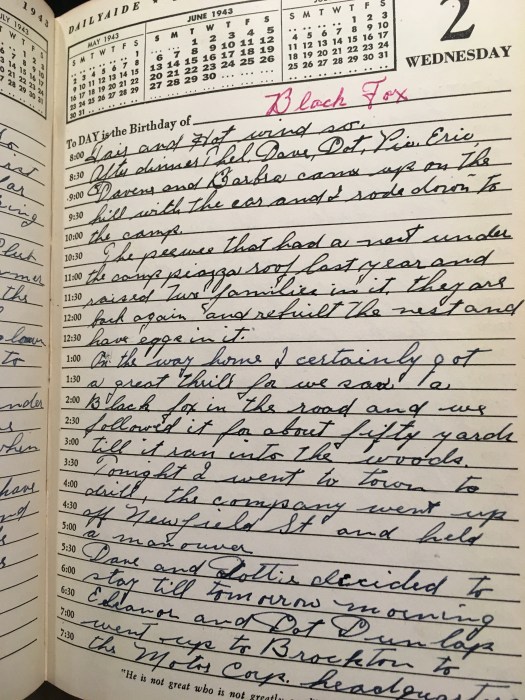 1943
DAILYAIDE
JULY 1943
MAY 1943
S M T W T F S
JUNE 1943
S M T W T F S
1 2 3 4 5
6 7 8 9 10 11 12
13 14 15 16 17 18 19
20 21 22 23 24 25 26
27 28 29 30
2
WEDNESDAY
Black Fox
To DAY is the Birthday of
8:00 Fair and Hot wind so.
8:30 After dinner Dave, Dot, Eric
9:00 and Barbra came up on the
9:30 hill with the car and I rode down to
10:00 the camp.
10:30 The peewee that had a nest under
11:00 the camp piazza roof last year and
11:30 raised two families in it, they are
12:00 back again and rebuilt the nest and
12:30 have eggs in it.
1:00 On the way home I certainly got
1:30 a great thrill for we saw a
2:00 Black fox in the road and we
2:30 followed it for about fifty yards
3:00 till it ran into the woods.
3:30 Tonight I went to town to
4:00 drill, the company went up
4:30 off Newfield St and held
5:00 a manouver
5:30 Dave and Dottie decided to
6:00 stay till tomorrow morning
6:30 Eleanor and Dot Dunlap
7:00 went up to Brockton to
7:30 the Motor Corp. headquarters
"He is not great who is not greatly